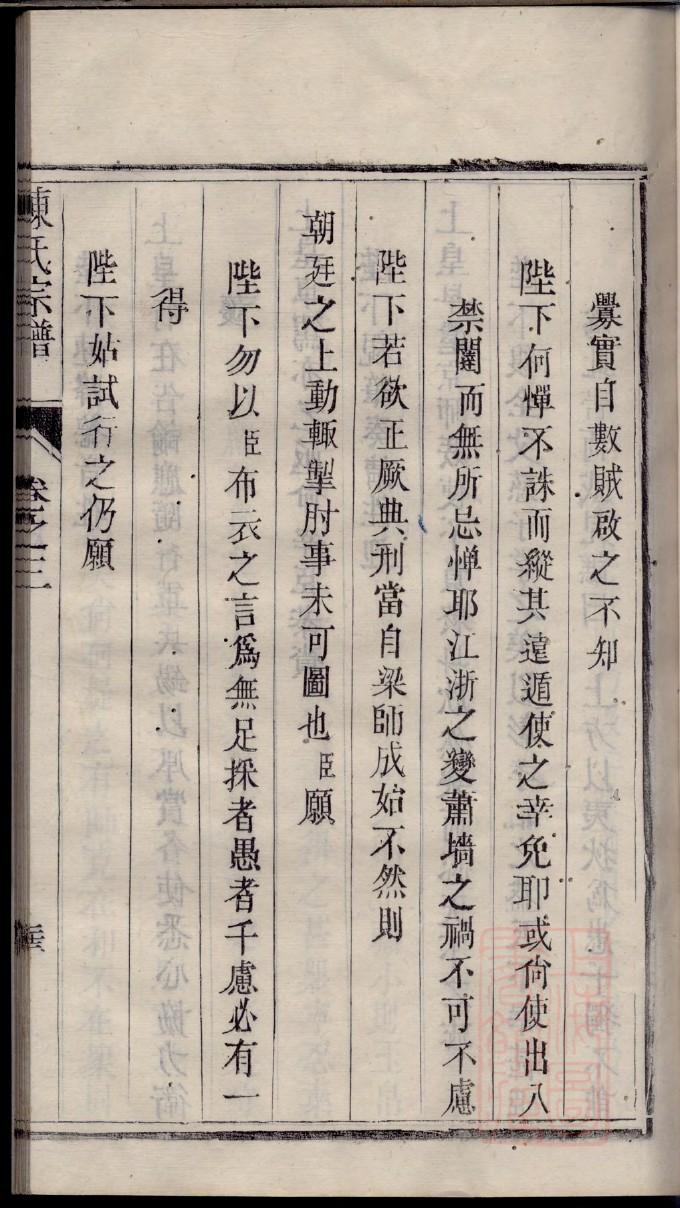 釁實自數賊啟之不知
陛下何憚不誅而縱其遠遁使之幸免耶或尙使出入
禁闥而無所忌憚耶江浙之變蕭墻之禍不可不慮
陛下若欲正厥典刑當自梁師成始不然則
朝廷之上動輒掣肘事未可圖也臣願
陛下勿以臣布衣之言爲無足採者愚者千慮必有一
得
陛下姑試行之仍願
陳氏宗譜
卷之三